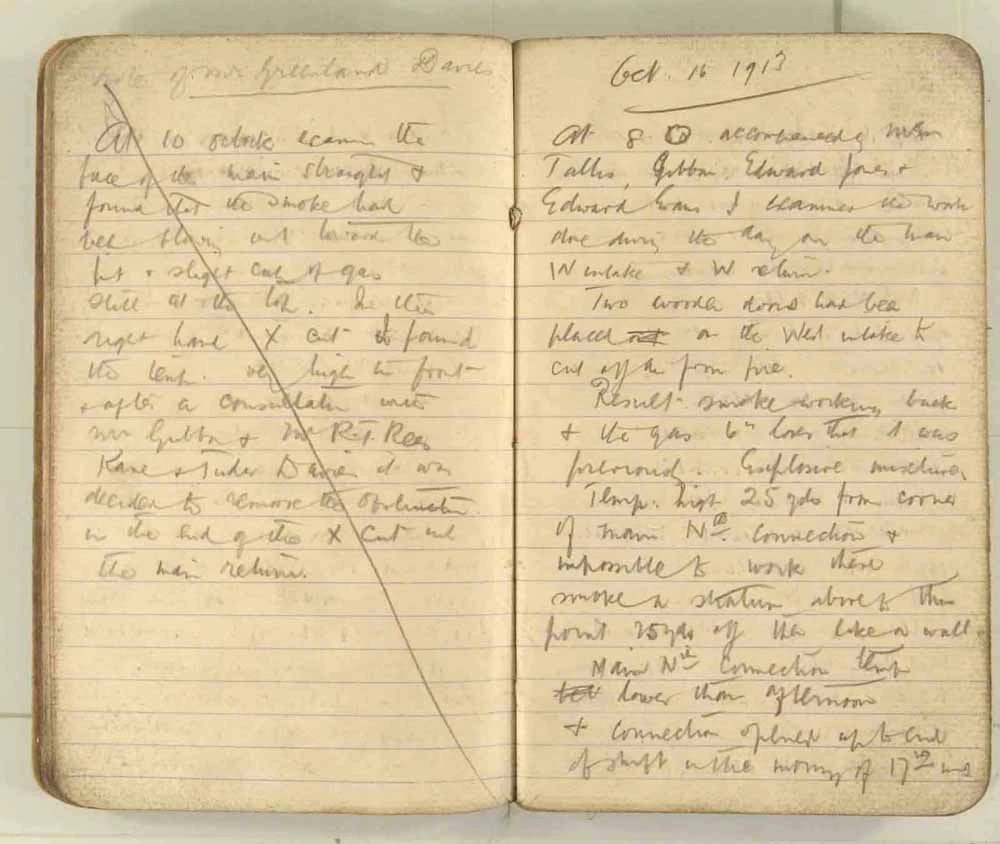 note of Mr Greenland Davies
At 10 oclock examin the
face of the main straight &
found that the smoke had
been slowly out toward the
pit & slight cap of gas
still at the top. In the
right hand X cut found
the temp. very high in front
& after a consultation with
Mr Gibbon & Mr R.T. Rees
Kane & Tudor Davies it was
decided to remove the obstruction
in the end of the X cut
the main return.
Oct. 16 1913
At 8.0 accompanied by Messrs
Tallis, Gibbon, Edward Jones &
Edward Evans I examined the work
done during the day on the main
W intake & W return.
Two wooden doors had been
placed on the West intake to
cut off air from fire.
Result smoke working back
& the gas 6" lower that it was
previously. Explosive mixture,
Temp. high 25 yds from corner
of main Nth. connection &
impossible to work there
smoke a stratum above to this
point 25 yds off then like a wall
Main Nth Connection temp
lower than afternoon
& connection opened up to end
of shift in the morning of 17th inst